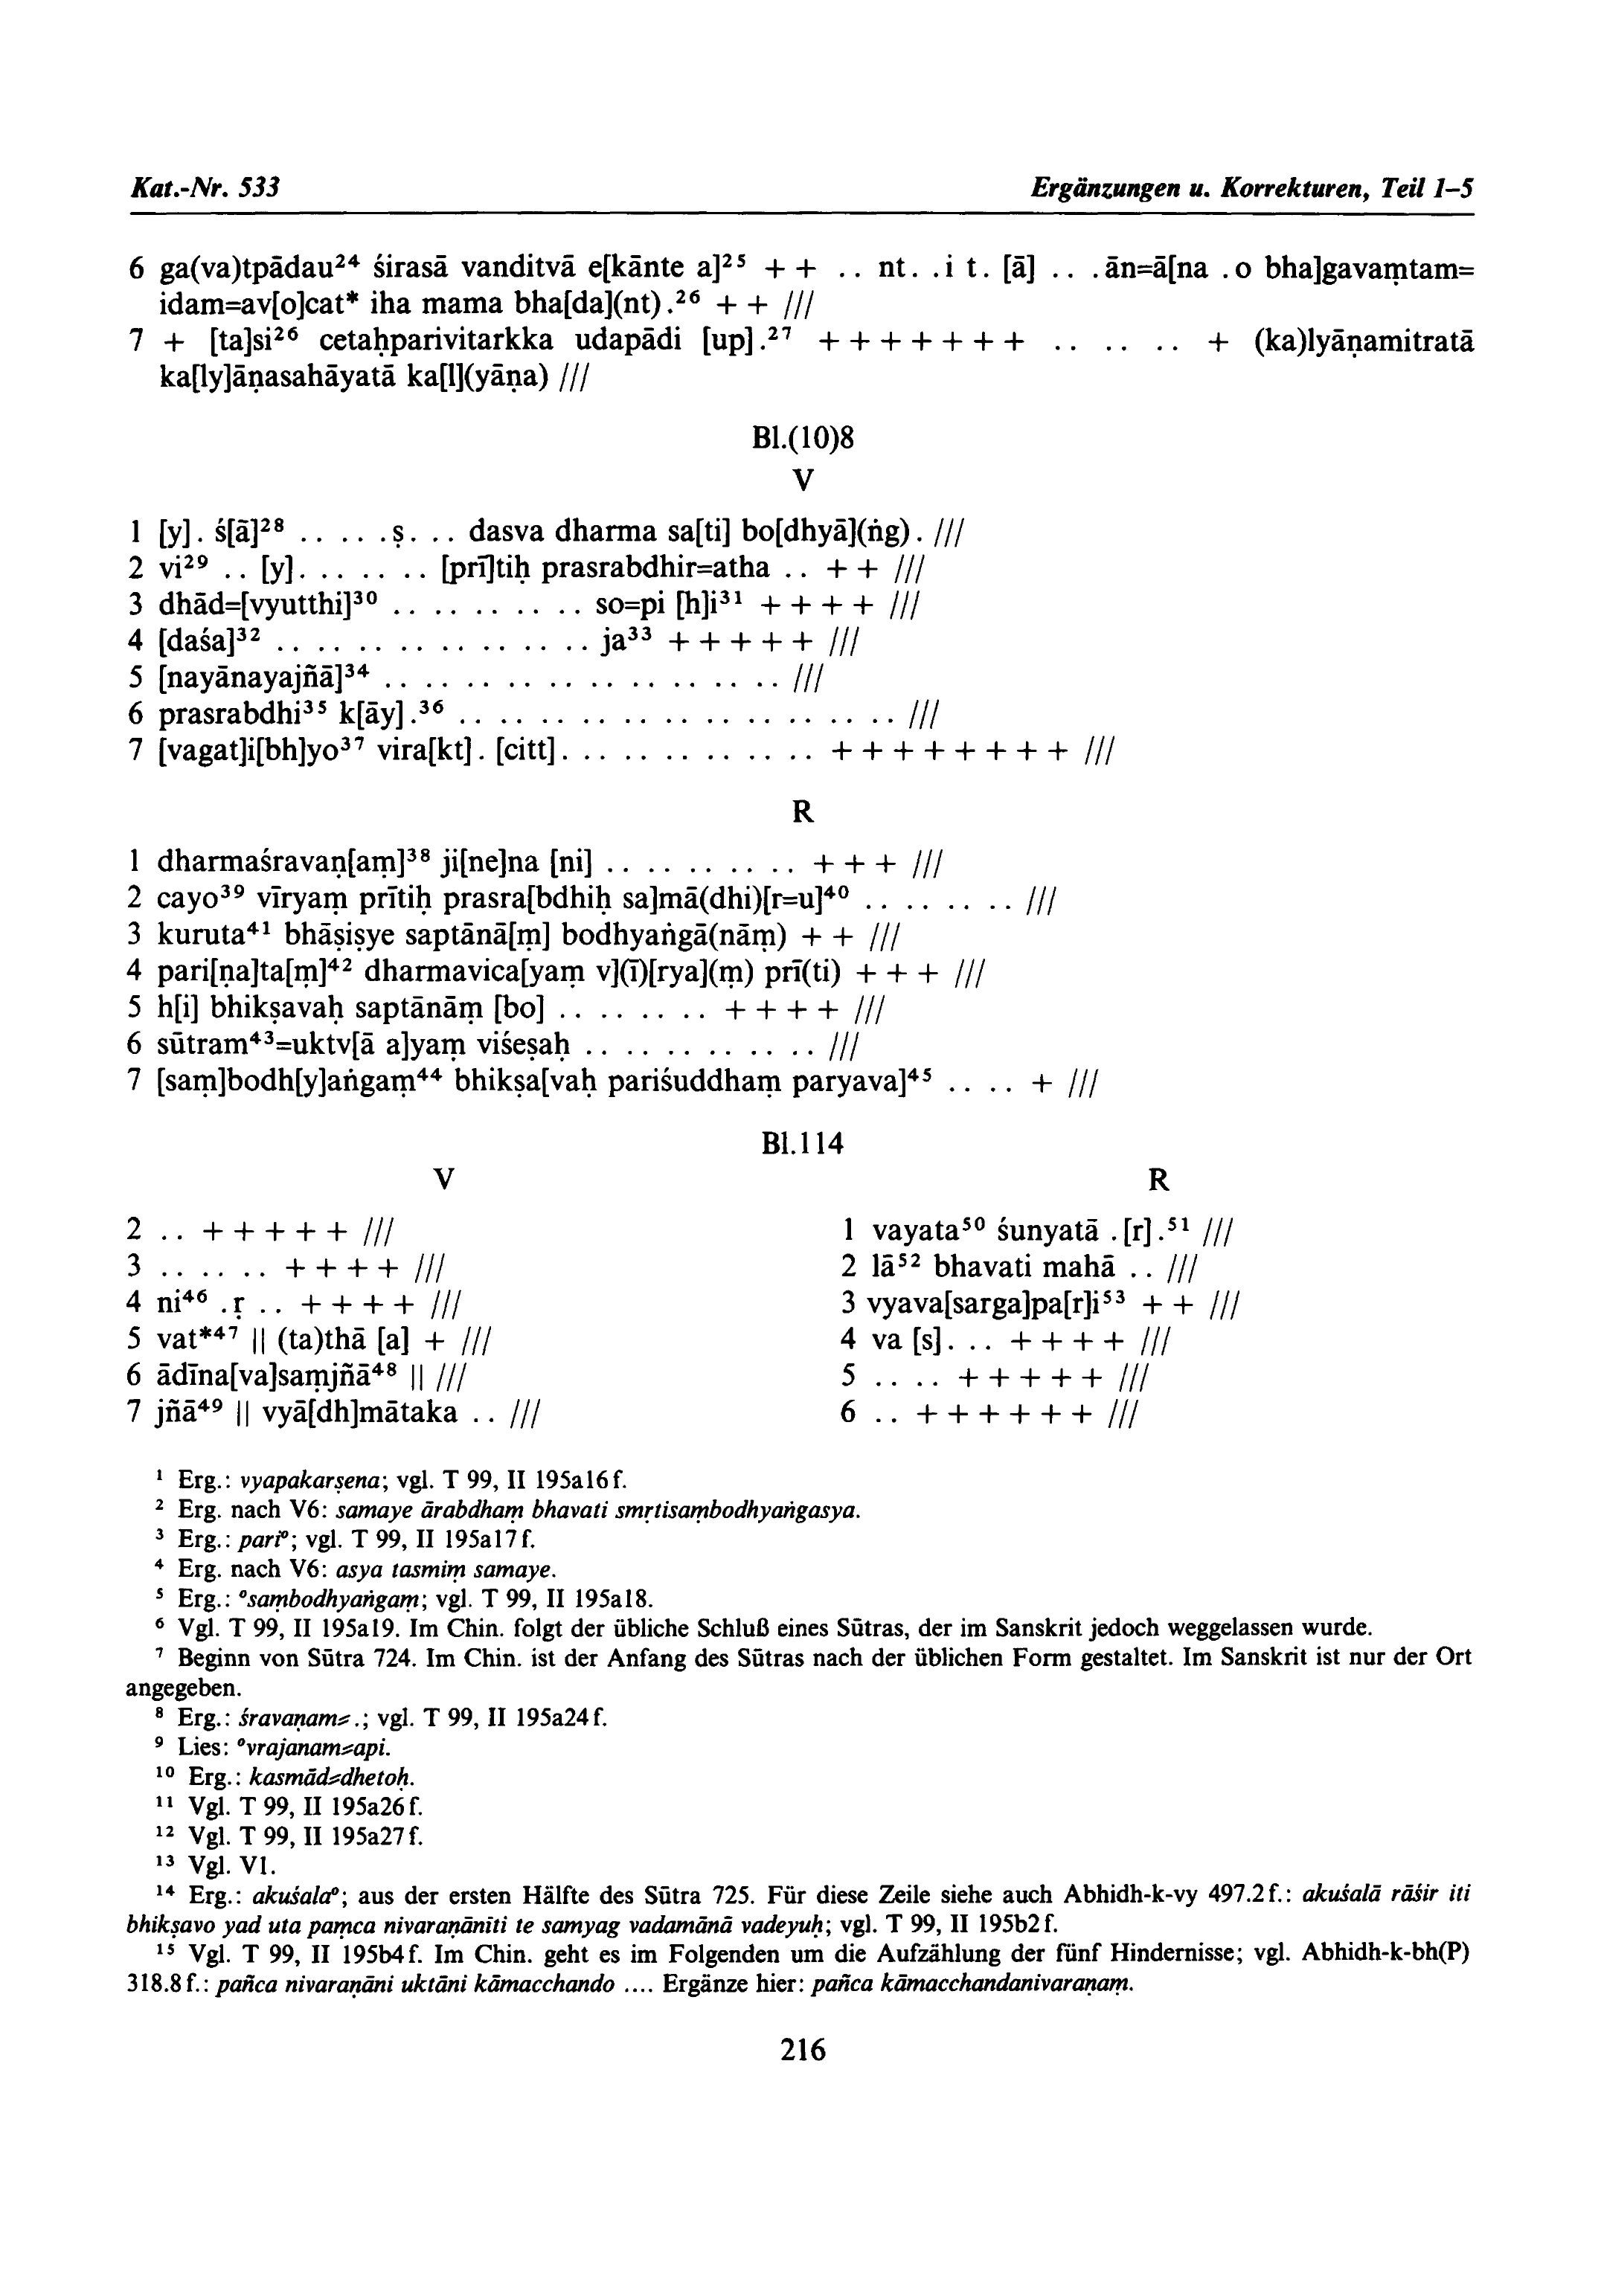 Kat.-Nr. 533 Ergänzungen u. Korrekturen, Teil 1–5
6 ga(va)tpādau²⁴ śirasā vanditvā e[kānte a]²⁵ + + .. nt. .i t. [ā] .. .ān=ā[na .o bha]gavaṃtam=
idam=av[o]cat* iha mama bha[da](nt).²⁶ + + ///
7 + [ta]si²⁶ cetaḥparivitarkka udapādi [up].²⁷ + + + + + + + .. .. .. + (ka)lyāṇamitratā
ka[ly]āṇasahāyatā ka[l](yāṇa) ///
Bl.(10)8
V
1 [y]. ś[ā]²⁸ .. .. .ṣ. .. dasva dharma sa[ti] bo[dhyā](ṅg). ///
2 vi²⁹ .. [y]. .. .. .. [prī]tiḥ prasrabdhir=atha .. + + ///
3 dhād=[vyutthi]³⁰ .. .. .. .. .. so=pi [h]i³¹ + + + + ///
4 [daśa]³² .. .. .. .. .. .. .. .. ja³³ + + + + + ///
5 [nayānayajñā]³⁴ .. .. .. .. .. .. .. .. .. .. ///
6 prasrabdhi³⁵ k[āy].³⁶ .. .. .. .. .. .. .. .. .. .. .. ///
7 [vagat]i[bh]yo³⁷ vira[kt]. [citt]. .. .. .. .. .. .. + + + + + + + + ///
R
1 dharmaśravaṇ[aṃ]³⁸ ji[ne]na [ni] .. .. .. .. .. + + + ///
2 cayo³⁹ vīryaṃ prītiḥ prasra[bdhiḥ sa]mā(dhi)[r=u]⁴⁰ .. .. .. .. ///
3 kuruta⁴¹ bhāṣiṣye saptānā[ṃ] bodhyaṅgā(nāṃ) + + ///
4 pari[ṇa]ta[ṃ]⁴² dharmavica[yaṃ v](ī)[rya](ṃ) prī(ti) + + + ///
5 h[i] bhikṣavaḥ saptānāṃ [bo] .. .. .. .. + + + + ///
6 sūtram⁴³=uktv[ā a]yaṃ viśeṣaḥ .. .. .. .. .. .. ///
7 [saṃ]bodh[y]aṅgaṃ⁴⁴ bhikṣa[vaḥ pariśuddhaṃ paryava]⁴⁵ .. .. + ///
Bl.114
V R
2 .. + + + + + /// 1 vayata⁵⁰ śunyatā .[r].⁵¹ ///
3 .. .. .. + + + + /// 2 lā⁵² bhavati mahā .. ///
4 ni⁴⁶ .ṛ .. + + + + /// 3 vyava[sarga]pa[r]i⁵³ + + ///
5 vat*⁴⁷ || (ta)thā [a] + /// 4 va [s]. .. + + + + ///
6 ādīna[va]saṃjñā⁴⁸ || /// 5 .. .. + + + + + ///
7 jñā⁴⁹ || vyā[dh]mātaka .. /// 6 .. + + + + + + ///
¹ Erg.: vyapakarṣena; vgl. T 99, II 195a16f.
² Erg. nach V6: samaye ārabdhaṃ bhavati smṛtisaṃbodhyaṅgasya.
³ Erg.: pari°; vgl. T 99, II 195a17f.
⁴ Erg. nach V6: asya tasmiṃ samaye.
⁵ Erg.: °saṃbodhyaṅgaṃ; vgl. T 99, II 195a18.
⁶ Vgl. T 99, II 195a19. Im Chin. folgt der übliche Schluß eines Sūtras, der im Sanskrit jedoch weggelassen wurde.
⁷ Beginn von Sūtra 724. Im Chin. ist der Anfang des Sūtras nach der üblichen Form gestaltet. Im Sanskrit ist nur der Ort
angegeben.
⁸ Erg.: śravaṇam=.; vgl. T 99, II 195a24f.
⁹ Lies: °vrajanam=api.
¹⁰ Erg.: kasmād=dhetoḥ.
¹¹ Vgl. T 99, II 195a26f.
¹² Vgl. T 99, II 195a27f.
¹³ Vgl. V1.
¹⁴ Erg.: akuśala°; aus der ersten Hälfte des Sūtra 725. Für diese Zeile siehe auch Abhidh-k-vy 497.2f.: akuśalā rāśir iti
bhikṣavo yad uta paṃca nivaraṇānīti te samyag vadamānā vadeyuḥ; vgl. T 99, II 195b2f.
¹⁵ Vgl. T 99, II 195b4f. Im Chin. geht es im Folgenden um die Aufzählung der fünf Hindernisse; vgl. Abhidh-k-bh(P)
318.8f.: pañca nivaraṇāni uktāni kāmacchando .... Ergänze hier: pañca kāmacchandanivaraṇaṃ.
216